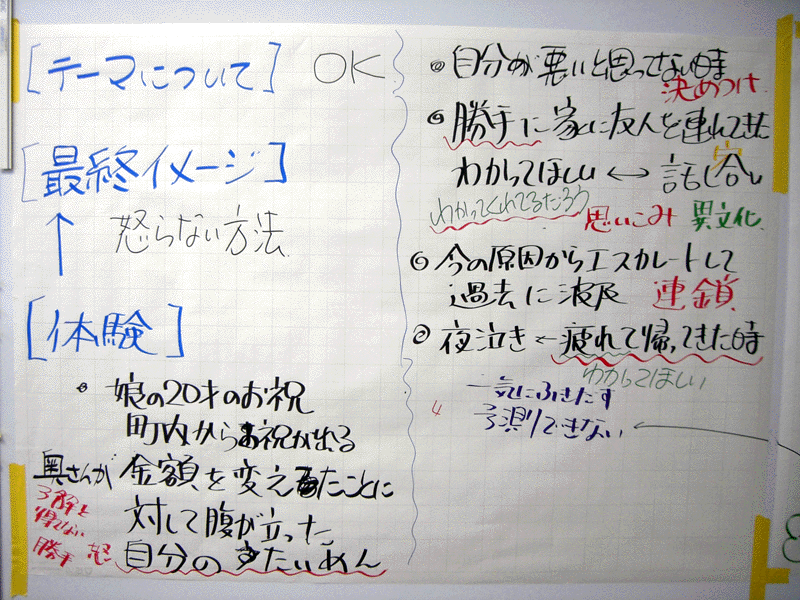 [テーマについて] OK
[最終イメージ]
怒らない方法
[体験]
娘の20才のお祝
町内からお祝が出る
奥さんが 金額を変えたことに
対して腹が立った。
自分の
了解を
得てない
勝手 怒
自分が悪いと思ってない時
決めつけ
勝手に家に友人を連れてきた
わかってほしい ↔ 話し合い
わかってくれてるだろう
思いこみ 異文化
今の原因からエスカレートして
過去に波及 連鎖
夜泣き ← 疲れて帰ってきた時
わかってほしい
一気にふきだす
予測できない ←